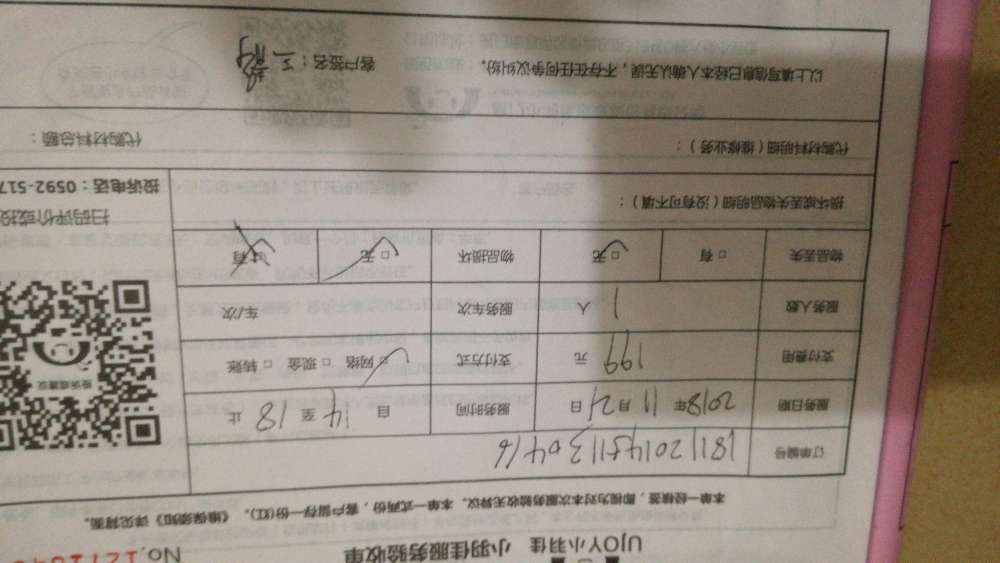 UJOY小羽佳 小羽佳服务验收单 No.
本单一经核签，即视为对本次服务验收无异议。本单一式两份，客户留存一份(红)。《维保须知》详见背面。
订单编号
服务日期 2018年 11月21日 服务时间 自 14 至 18 止
支付费用 199 元 支付方式 □ 网络 □ 现金 □ 转账
服务人数 1 人 服务车次 车/次
物品丢失 □ 有 □ 无 物品损坏 □ 无 □ 有
损坏或丢失物品明细（没有可不填）：
扫码评价或投
投诉电话：0592-517
代购材料明细（维修业务）： 代购材料总额：
以上填写信息已经本人确认无误，不存在任何争议纠纷。 客户签名：